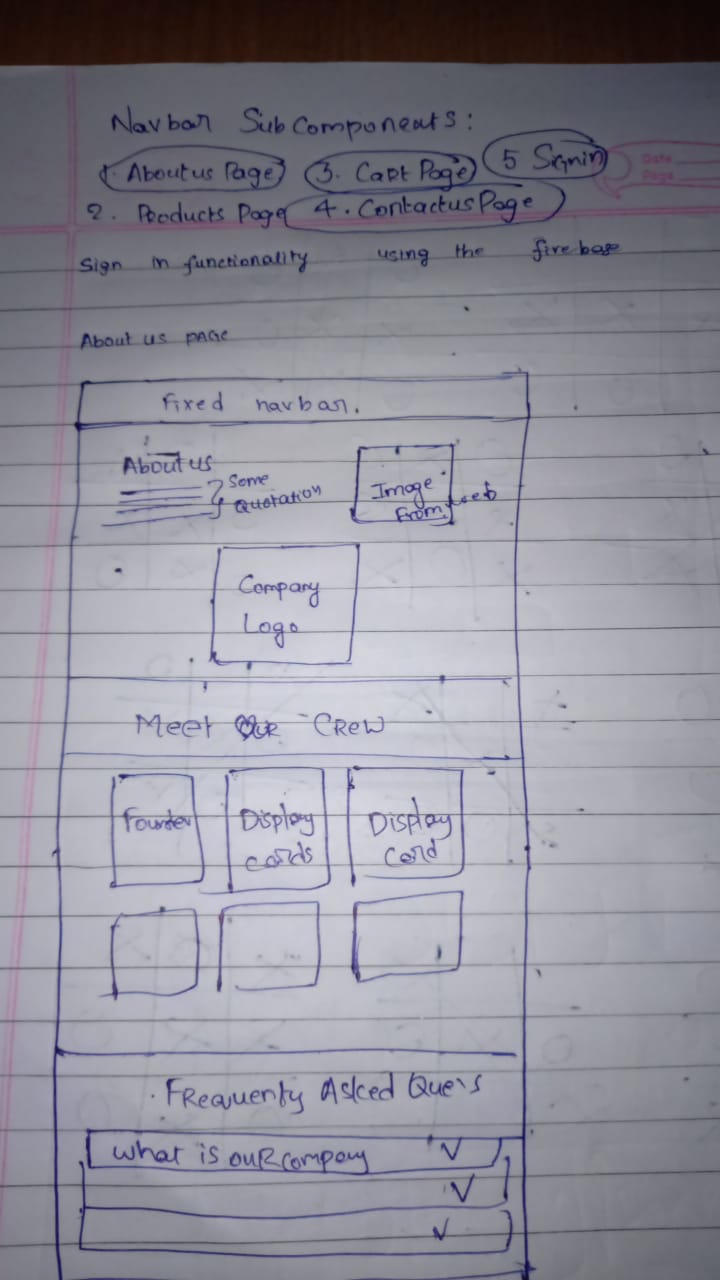 Navbar Subcomponents:
1. Aboutus Page 3. Cart Page 5 Signin
2. Products Page 4. Contactus Page
Date
Page
Sign in functionality using the firebase
About us PAGE
Fixed navbar.
About us
Some
Quotation
Image
From web
Company
Logo
Meet OUR CREW
Founder Display Display
cards Card
FRequently Asked Ques
what is ouR company